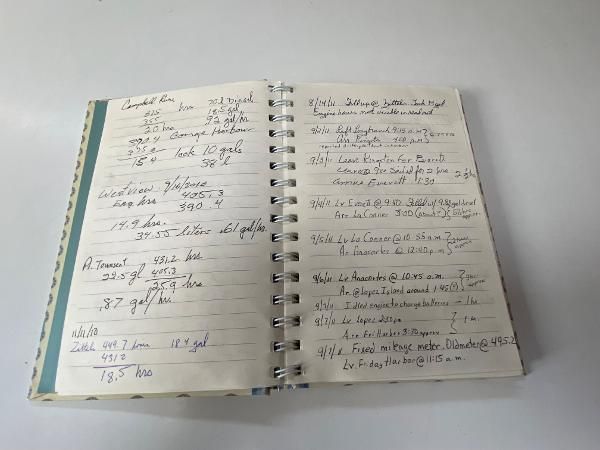 Campbell River
375 hrs 70 l Diesel
355 18.5 gal
20 hrs .92 gal/hr
390.4 George Harbour
375.0 took 10 gals
15.4 38 l
Westview 9/10/2010
Eng hrs 405.3
390.4
14.9 hrs.
34.55 liters .61 gal/hr.
P. Townsend 431.2 hrs
22.5 gl 405.3
25.9 hrs
.87 gal/hr.
11/11/10
449.7 hours 18.4 gal
431.2
18.5 hrs
8/14/11
Engine hours not
9/2/11 Left 9:15 a.m.
Arr Kingston
9/3/11 Leave Kingston for Everett
Sailed for 2 hrs 2 1/2 hrs
arrive Everett 1:30
9/4/11 Lv Everett @ 9:40
Arr LaConner 3:00
9/5/11 Lv LaConner @ 10:55 a.m.
Ar Anacortes @ 12:40 p.m.
9/6/11 Lv Anacortes @ 10:45 a.m.
Ar. @ Lopez Island around 1:45 (?)
9/7/11 Idled engine to charge batteries - 1 hr.
9/7/11 Lv Lopez 2:30 pm
Arr Fri Harbor 3:30 approx
9/9/11 Fixed mileage meter. Old meter @ 495.2
Lv. Friday Harbor @ 11:15 a.m.